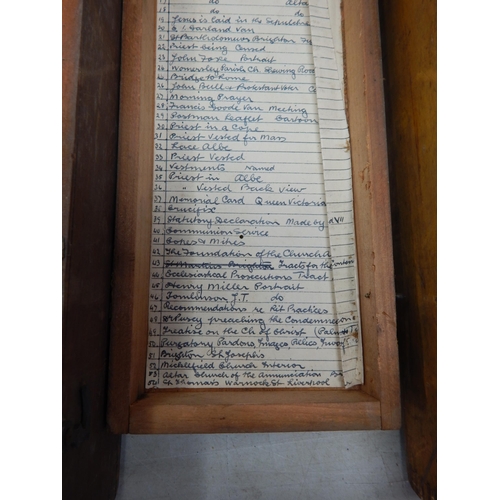 17 do Altar
18 do
19 Jesus is laid in the Sepulchre
20 Garland Van
21 St Bartholomews Brighton
22 Priest being Censed
23 John Foxe Portrait
24 Womersley Parish Ch. Showing
25 Bridge to Rome
26 John Bull & Protestant Voter
27 Morning Prayer
28 Francis Goode Van Meeting
29 Postman Leaflet Cartoon
30 Priest in a Cope
31 Priest Vested for Mass
32 Lace Albe
33 Priest Vested
34 Vestments Named
35 Priest in Albe
36 " Vested Back View
37 Memorial Card Queen Victoria
38 Crucifix
39 Statutory Declaration Made by
40 Communion Service
41 Copes & Mitres
42 The Foundation of the Church
43 St Martins Brighton Tracts for the
44 Ecclesiastical Prosecutions Tract
45 Henry Miller Portrait
46 Tomlinson J.T. do
47 Recommendations re Rit Practices
48 Dr Pusey preaching the Condemned
49 Treatise on the Ch of Christ (Palmer)
50 Purgatory Pardons Images Relics
51 Brighton St Josephs
52 Micklefield Church Interior
53 Altar Church of the Annunciation
54 St Thomas's Warnock St Liverpool